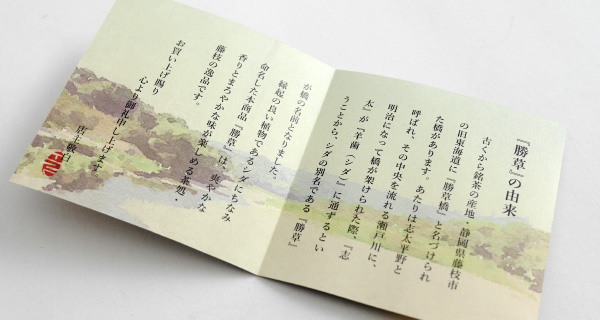 『勝草』の由来
古くから銘茶の産地・静岡県藤枝市
の旧東海道に『勝草橋』と名づけられ
た橋があります。あたりは志太平野と
呼ばれ、その中央を流れる瀬戸川に、
明治になって橋が架けられた際、『志
太』が『羊歯（シダ）』に通ずるとい
うことから、シダの別名である『勝草』
が橋の名前となりました。
縁起の良い植物であるシダにちなみ
命名した本商品『勝草』は、爽やかな
香りとまろやかな味が楽しめる茶処・
藤枝の逸品です。
お買い上げ賜り
心より御礼申し上げます。
店主敬白